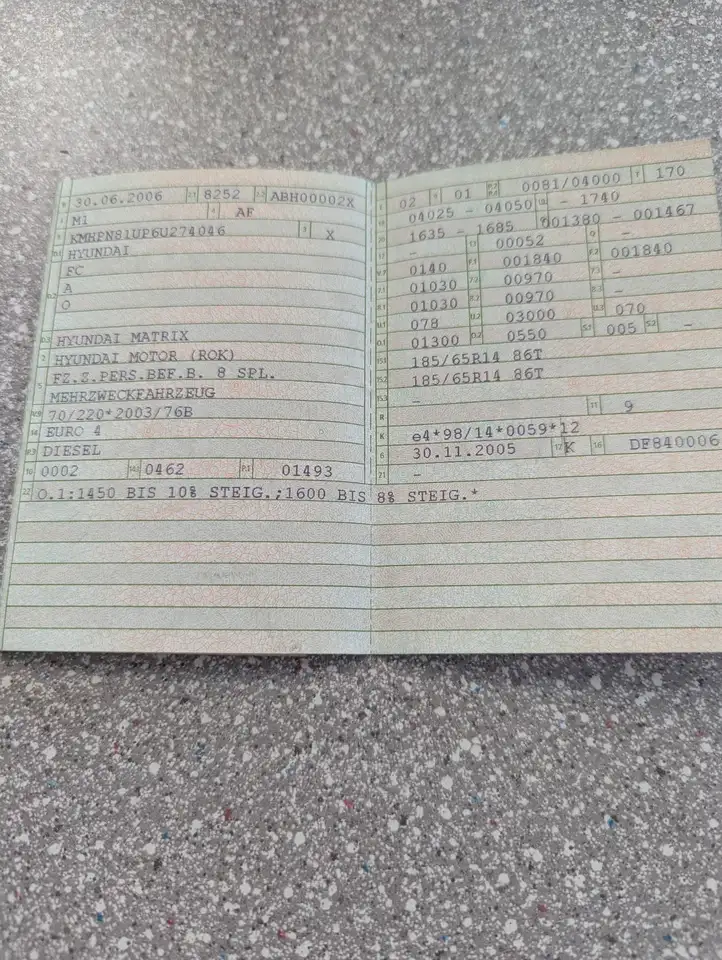 30.06.2006 2.1 8252 2.2 ABH00002X
J M1 4 AF
E KMHPN81UP6U274046 3 X
D.1 HYUNDAI
FC
D.2 A
O
D.3 HYUNDAI MATRIX
2 HYUNDAI MOTOR (ROK)
5 FZ.Z.PERS.BEF.B. 8 SPL.
MEHRZWECKFAHRZEUG
V.9 70/220*2003/76B
14 EURO 4
P.3 DIESEL
10 0002 14.1 0462 P.1 01493
22 O.1:1450 BIS 10% STEIG.;1600 BIS 8% STEIG.*
L 02 9 01 P.2 P.4 0081/04000 T 170
18 04025 - 04050 19 - 1740
20 1635 - 1685 G 001380 - 001467
12 - 13 00052 Q -
V.7 0140 F.1 001840 F.2 001840
7.1 01030 7.2 00970 7.3 -
8.1 01030 8.2 00970 8.3 -
U.1 078 U.2 03000 U.3 070
O.1 01300 O.2 0550 S.1 005 S.2 -
15.1 185/65R14 86T
15.2 185/65R14 86T
15.3 -
R 11 9
K e4*98/14*0059*12
6 30.11.2005 17 K 16 DF840006
21 -